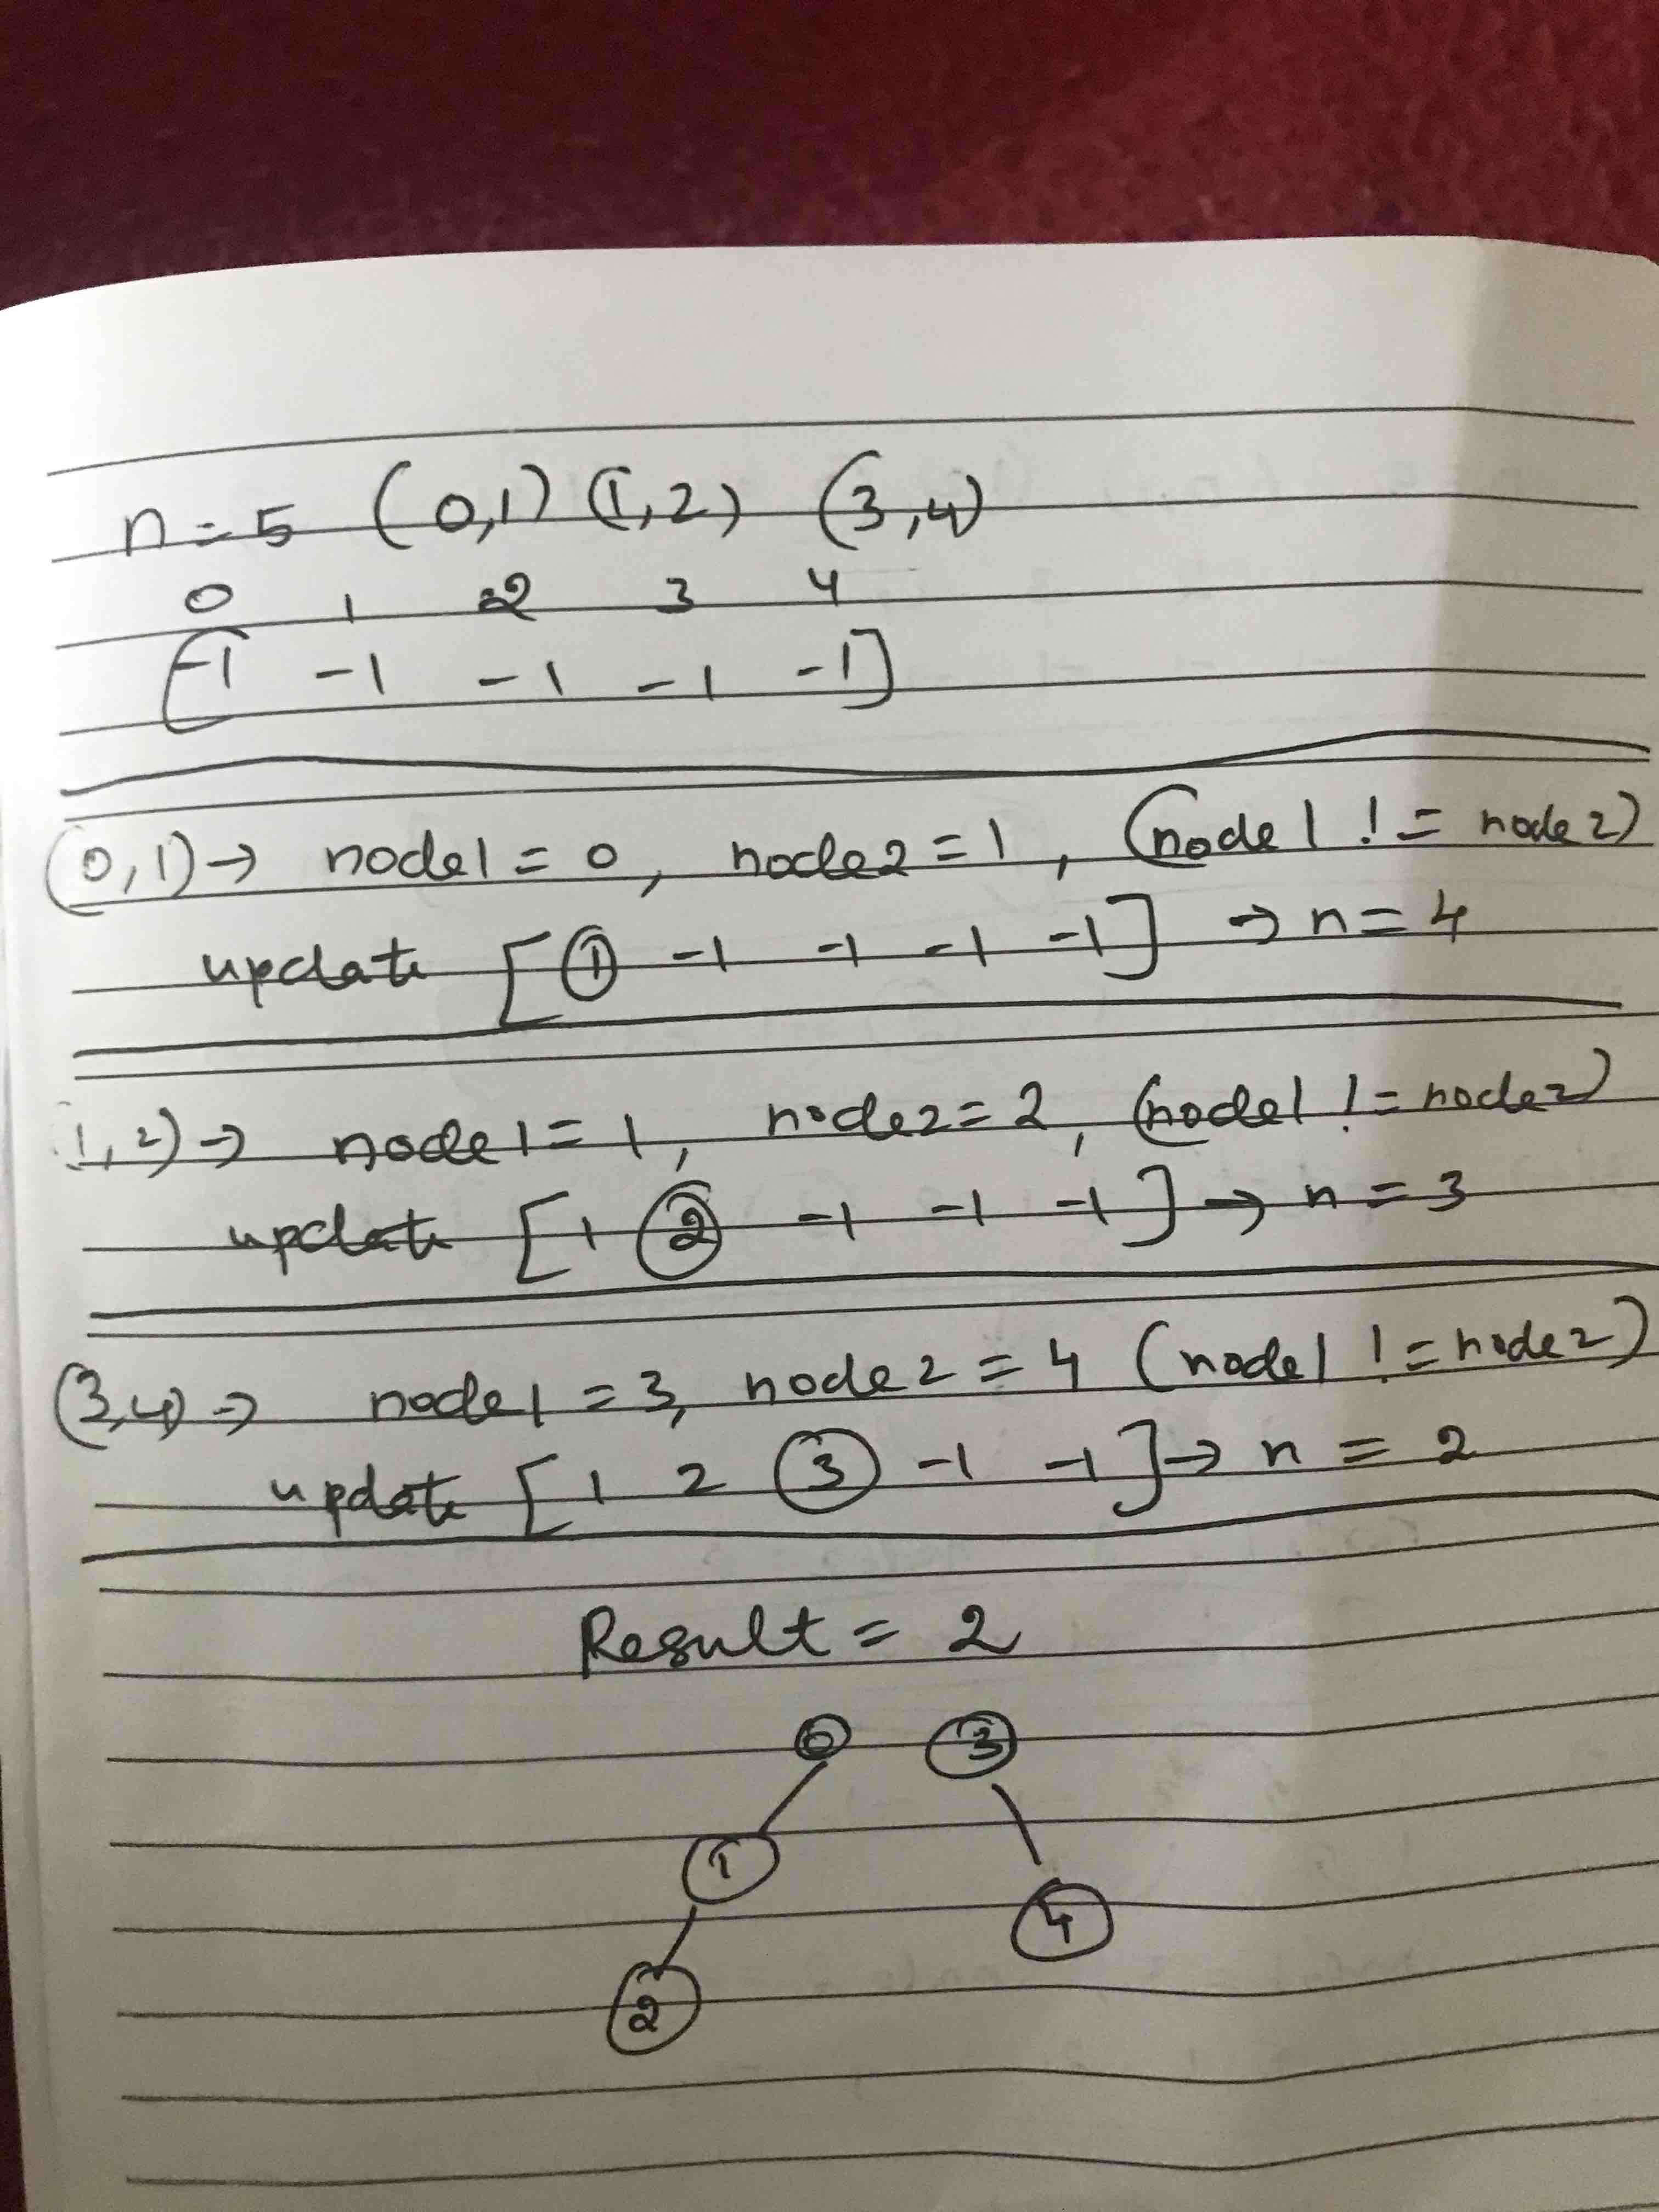 n = 5 (0,1) (1,2) (3,4)
0 1 2 3 4
[-1 -1 -1 -1 -1]
(0,1) → node1 = 0, node2 = 1, (node1 != node2)
update [1 -1 -1 -1 -1] → n = 4
(1,2) → node1 = 1, node2 = 2, (node1 != node2)
update [1 2 -1 -1 -1] → n = 3
(3,4) → node1 = 3, node2 = 4 (node1 != node2)
update [1 2 3 -1 -1] → n = 2
Result = 2
0 3
1
4
2